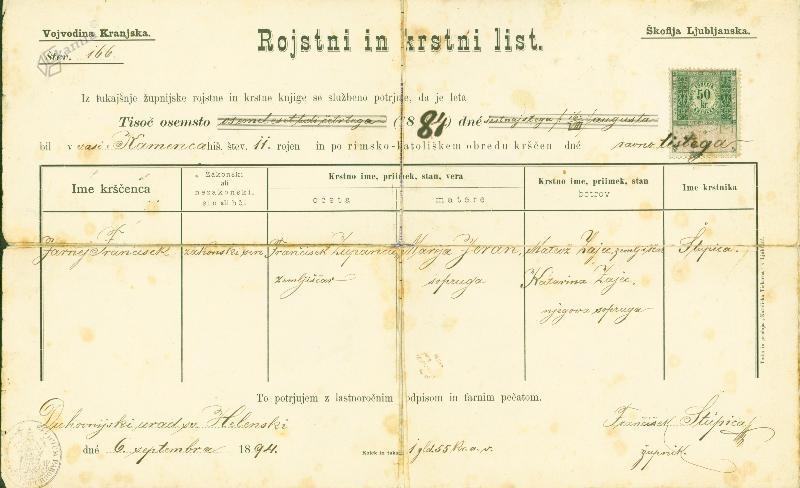 Vojvodina Kranjska.
Škofija Ljubljanska.
Rojstni in krstni list.
Štev. 166.
Iz tukajšnje župnijske rojstne in krstne knjige se službeno potrjuje, da je leta
50
Tisoč osemsto (18 84) dné šestnajstega avgusta
bil v vasi Kamenca hiš. štev. 11. rojen in po rimsko-katoliškem obredu krščen dné ravno tistega.
Ime krščenca
Zakonski ali nezakonski, sin ali hči.
Krstno ime, priimek, stan, vera
očeta
matere
Krstno ime, priimek, stan
botrov
Ime krstnika
Jarnej Frančišek
zakonski sin
Frančišek Zupančič
zemljiščar
Marija Jeran,
soproga
Matevž Zajc, zemljiščar
Katarina Zajc.
njegova soproga
Štupica.
To potrjujem z lastnoročnim podpisom in farnim pečatom.
Duhovnijski urad sv. Helenski
dné 6. septembra 1894.
Kolek in taksa 1 gld 55 kr. a. v.
Frančišek Štupica
župnik.